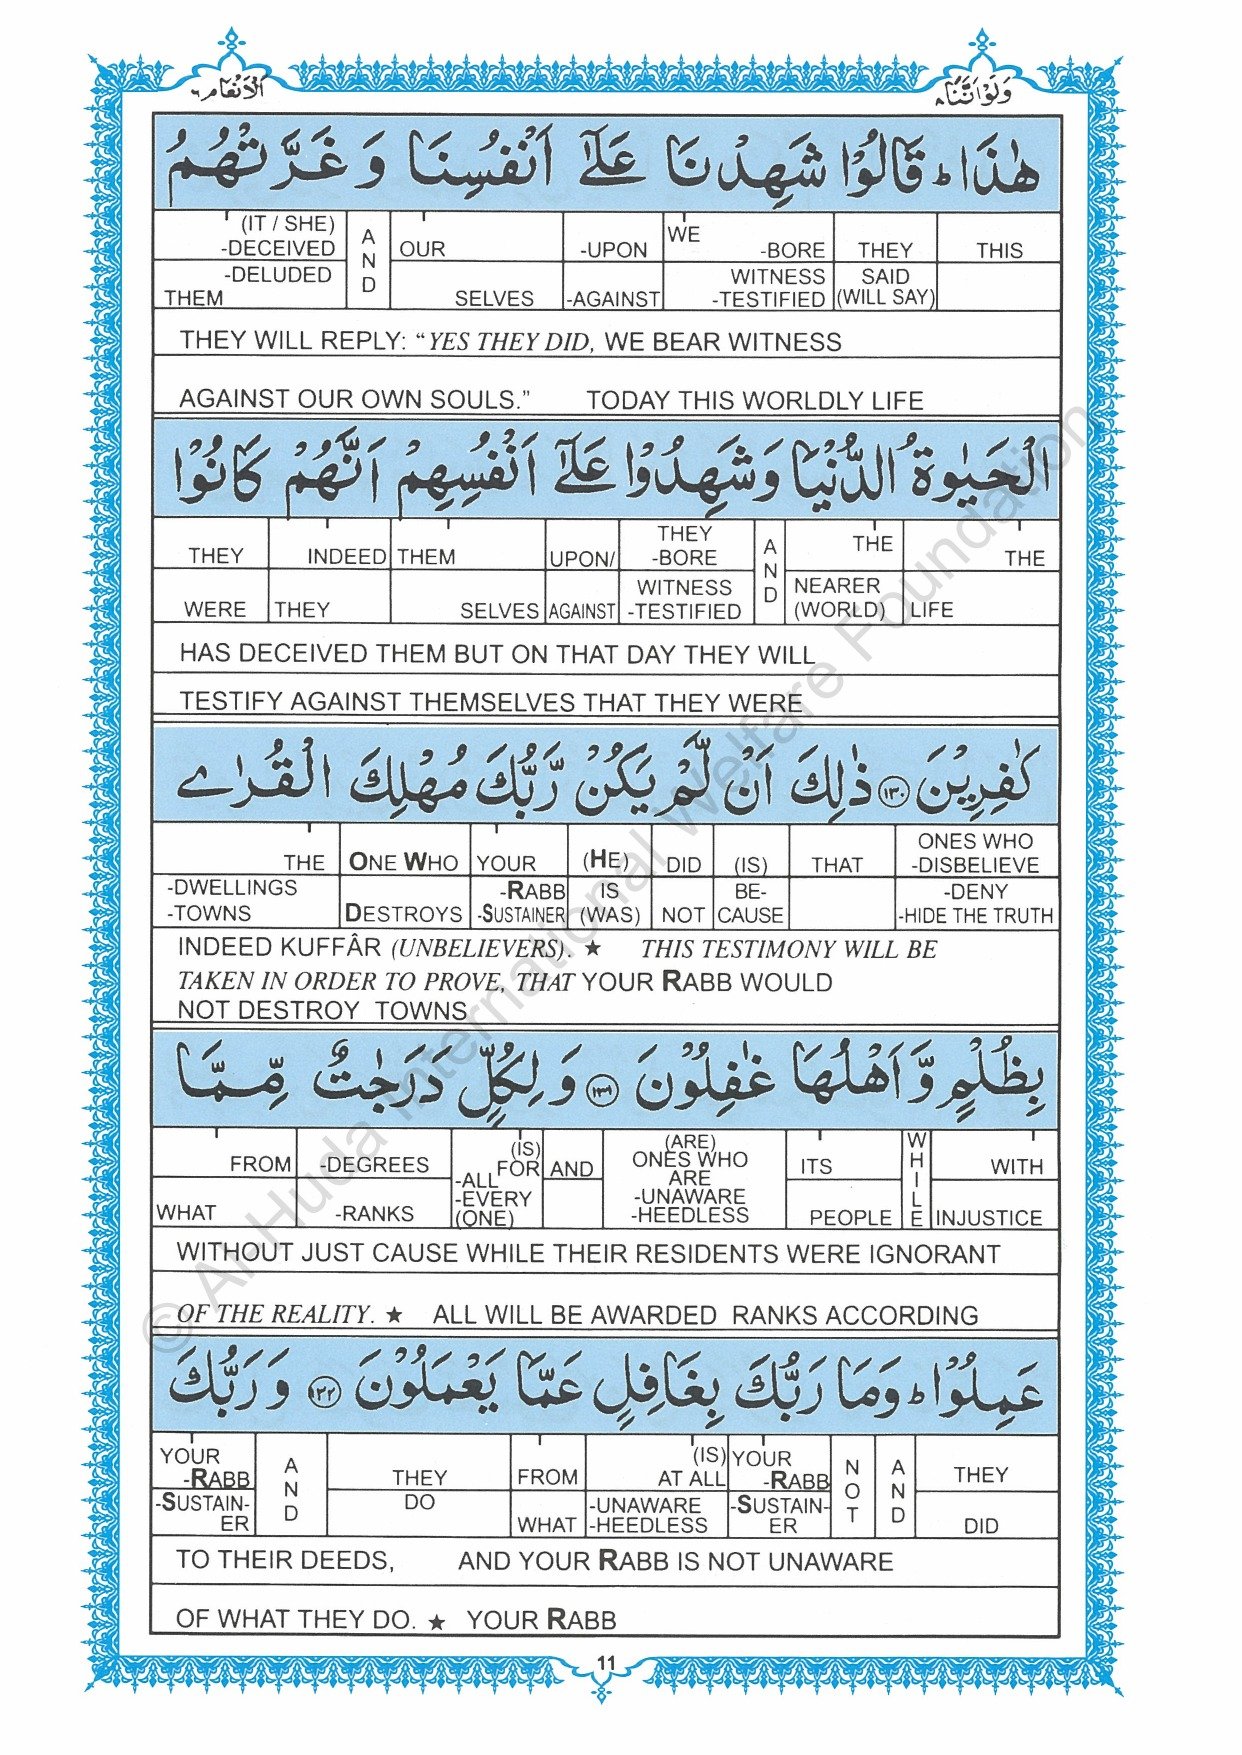 الانعام ٦
ولو اننا ٨
هٰذَا ؕ قَالُوْا شَهِدْنَا عَلٰٓى اَنْفُسِنَا وَ غَرَّتْهُمُ
(IT / SHE) -DECEIVED A N D OUR -UPON WE -BORE THEY THIS
-DELUDED THEM SELVES -AGAINST WITNESS -TESTIFIED SAID (WILL SAY)
THEY WILL REPLY: “YES THEY DID, WE BEAR WITNESS
AGAINST OUR OWN SOULS.” TODAY THIS WORLDLY LIFE
الْحَيٰوةُ الدُّنْيَا وَشَهِدُوْا عَلٰٓى اَنْفُسِهِمْ اَنَّهُمْ كَانُوْا
THEY INDEED THEM UPON/ THEY -BORE A N D THE THE
WERE THEY SELVES AGAINST WITNESS -TESTIFIED NEARER (WORLD) LIFE
HAS DECEIVED THEM BUT ON THAT DAY THEY WILL
TESTIFY AGAINST THEMSELVES THAT THEY WERE
كٰفِرِيْنَ ﴿١٣٠﴾ ذٰلِكَ اَنْ لَّمْ يَكُنْ رَّبُّكَ مُهْلِكَ الْقُرٰى
THE ONE WHO YOUR (HE) DID (IS) THAT ONES WHO -DISBELIEVE
-DWELLINGS -TOWNS DESTROYS -RABB -SUSTAINER IS (WAS) NOT BE- CAUSE -DENY -HIDE THE TRUTH
INDEED KUFFÂR (UNBELIEVERS). ★ THIS TESTIMONY WILL BE
TAKEN IN ORDER TO PROVE, THAT YOUR RABB WOULD
NOT DESTROY TOWNS
بِظُلْمٍ وَّ اَهْلُهَا غٰفِلُوْنَ ﴿١٣١﴾ وَ لِكُلٍّ دَرَجٰتٌ مِّمَّا
FROM -DEGREES (IS) FOR AND (ARE) ONES WHO ARE ITS W H I L E WITH
WHAT -RANKS -ALL -EVERY (ONE) -UNAWARE -HEEDLESS PEOPLE INJUSTICE
WITHOUT JUST CAUSE WHILE THEIR RESIDENTS WERE IGNORANT
OF THE REALITY. ★ ALL WILL BE AWARDED RANKS ACCORDING
عَمِلُوْا ؕ وَمَا رَبُّكَ بِغَافِلٍ عَمَّا يَعْمَلُوْنَ ﴿١٣٢﴾ وَرَبُّكَ
YOUR -RABB A N D THEY FROM (IS) AT ALL YOUR -RABB N O T A N D THEY
-SUSTAIN- ER DO WHAT -UNAWARE -HEEDLESS -SUSTAIN- ER DID
TO THEIR DEEDS, AND YOUR RABB IS NOT UNAWARE
OF WHAT THEY DO. ★ YOUR RABB
11
© Al-Huda International Welfare Foundation